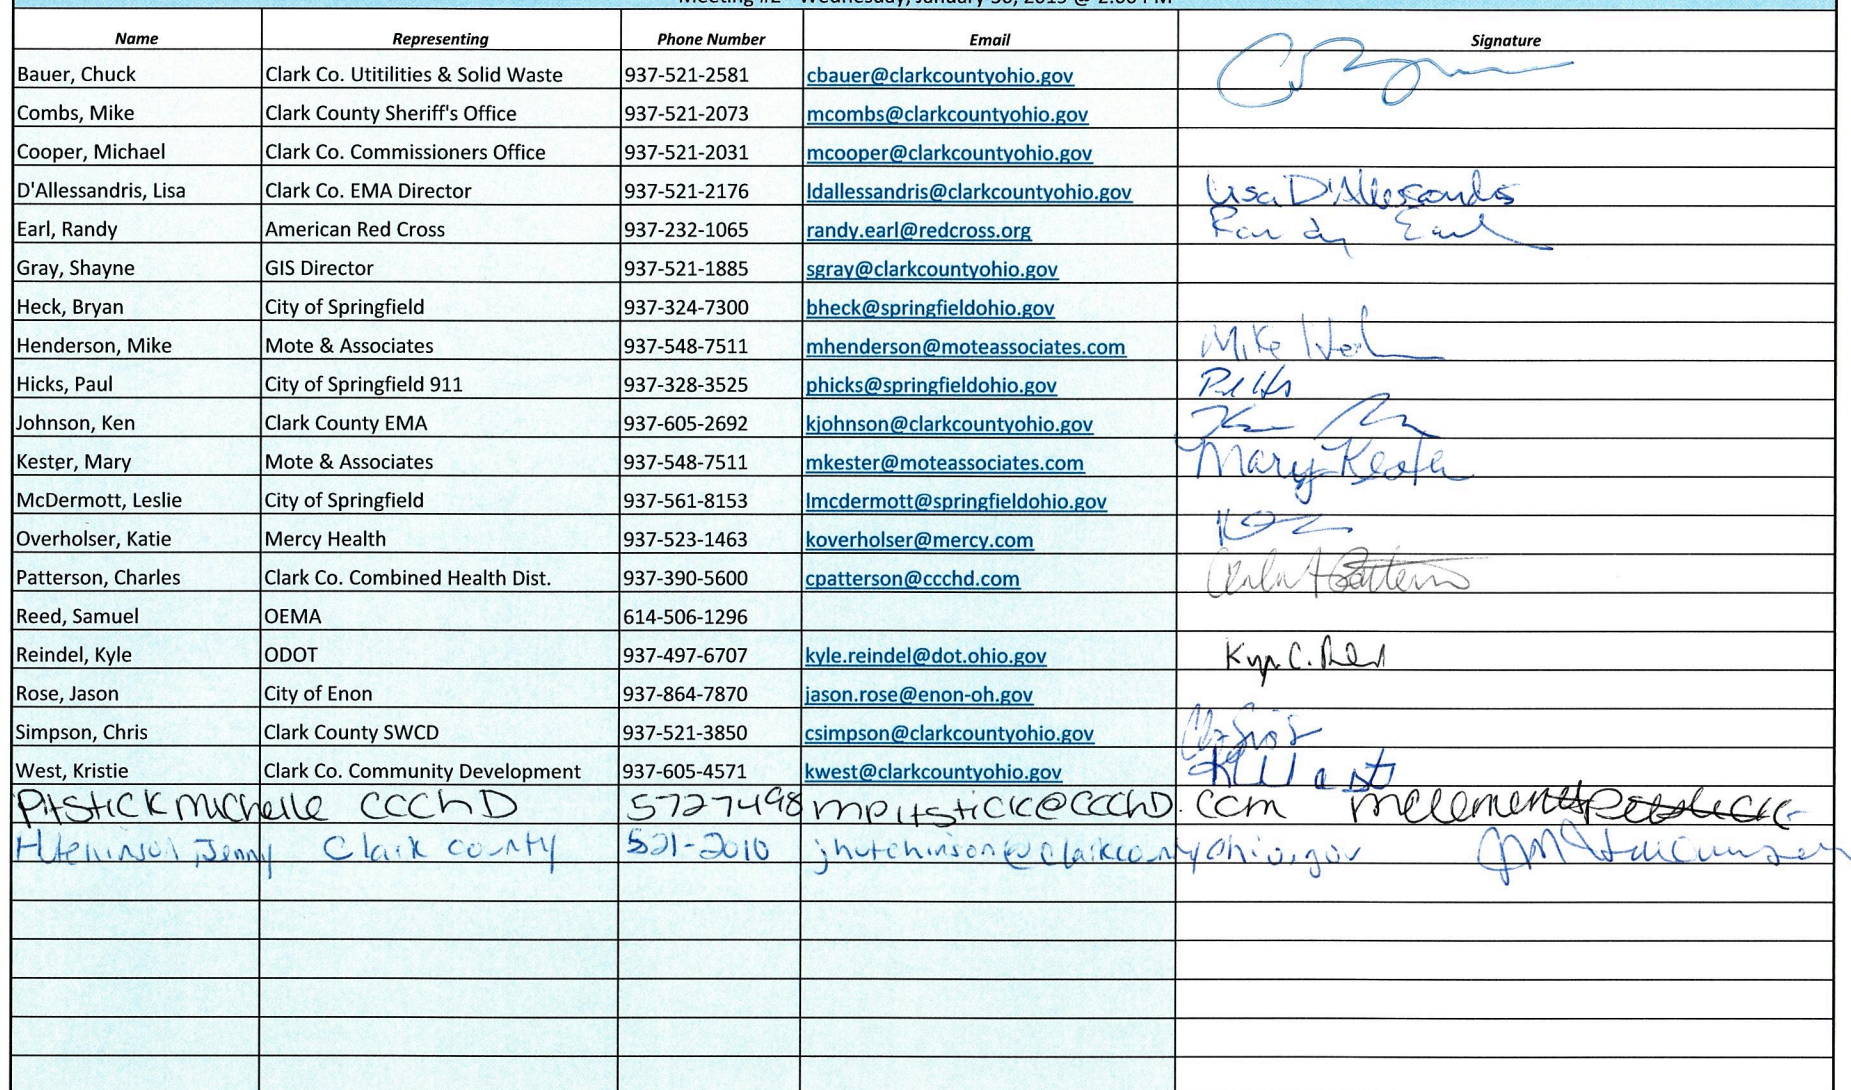 Meeting #2 - Wednesday, January 30, 2019 @ 2:00 PM
Name Representing Phone Number Email Signature
Bauer, Chuck Clark Co. Utitilities & Solid Waste 937-521-2581 cbauer@clarkcountyohio.gov
Combs, Mike Clark County Sheriff's Office 937-521-2073 mcombs@clarkcountyohio.gov
Cooper, Michael Clark Co. Commissioners Office 937-521-2031 mcooper@clarkcountyohio.gov
D'Allessandris, Lisa Clark Co. EMA Director 937-521-2176 ldallessandris@clarkcountyohio.gov Lisa D'Allessandris
Earl, Randy American Red Cross 937-232-1065 randy.earl@redcross.org Randy Earl
Gray, Shayne GIS Director 937-521-1885 sgray@clarkcountyohio.gov
Heck, Bryan City of Springfield 937-324-7300 bheck@springfieldohio.gov
Henderson, Mike Mote & Associates 937-548-7511 mhenderson@moteassociates.com Mike
Hicks, Paul City of Springfield 911 937-328-3525 phicks@springfieldohio.gov
Johnson, Ken Clark County EMA 937-605-2692 kjohnson@clarkcountyohio.gov
Kester, Mary Mote & Associates 937-548-7511 mkester@moteassociates.com Mary Kester
McDermott, Leslie City of Springfield 937-561-8153 lmcdermott@springfieldohio.gov
Overholser, Katie Mercy Health 937-523-1463 koverholser@mercy.com
Patterson, Charles Clark Co. Combined Health Dist. 937-390-5600 cpatterson@ccchd.com
Reed, Samuel OEMA 614-506-1296
Reindel, Kyle ODOT 937-497-6707 kyle.reindel@dot.ohio.gov
Rose, Jason City of Enon 937-864-7870 jason.rose@enon-oh.gov
Simpson, Chris Clark County SWCD 937-521-3850 csimpson@clarkcountyohio.gov
West, Kristie Clark Co. Community Development 937-605-4571 kwest@clarkcountyohio.gov K West
Pitstick Michelle CCCHD 5727498 mpitstick@CCCHD.com
Jenny Clark county 521-2010 jhutchinson@clarkcountyohio.gov